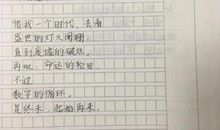 借我一个时代，去看
盛世的灯火阑珊
直到废墟的破败
再叹，命运的轮回
不过
数字的循环。
是终末，起始再来。